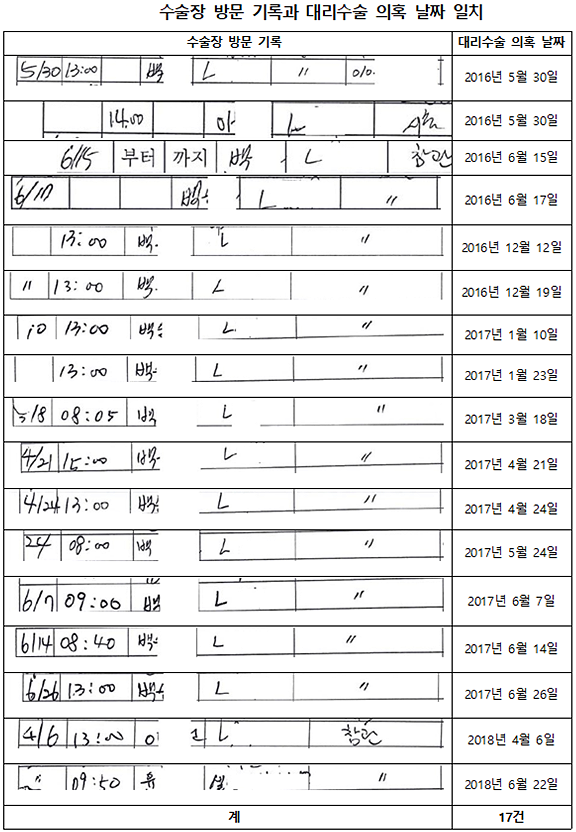 수술장 방문 기록과 대리수술 의혹 날짜 일치
수술장 방문 기록 대리수술 의혹 날짜
5/30 13:00 백 L 〃 2016년 5월 30일
14:00 L 2016년 5월 30일
6/15 부터 까지 백 L 참관 2016년 6월 15일
6/17 백 L 〃 2016년 6월 17일
13:00 백 L 〃 2016년 12월 12일
〃 13:00 백 L 〃 2016년 12월 19일
10 13:00 백 L 〃 2017년 1월 10일
13:00 백 L 〃 2017년 1월 23일
3/18 08:05 백 L 〃 2017년 3월 18일
4/21 15:00 백 L 〃 2017년 4월 21일
4/24 13:00 백 L 〃 2017년 4월 24일
24 08:00 백 L 〃 2017년 5월 24일
6/7 09:00 백 L 〃 2017년 6월 7일
6/14 08:40 백 L 〃 2017년 6월 14일
6/26 13:00 백 L 〃 2017년 6월 26일
4/6 13:00 이 L 참관 2018년 4월 6일
〃 09:50 〃 2018년 6월 22일
계 17건